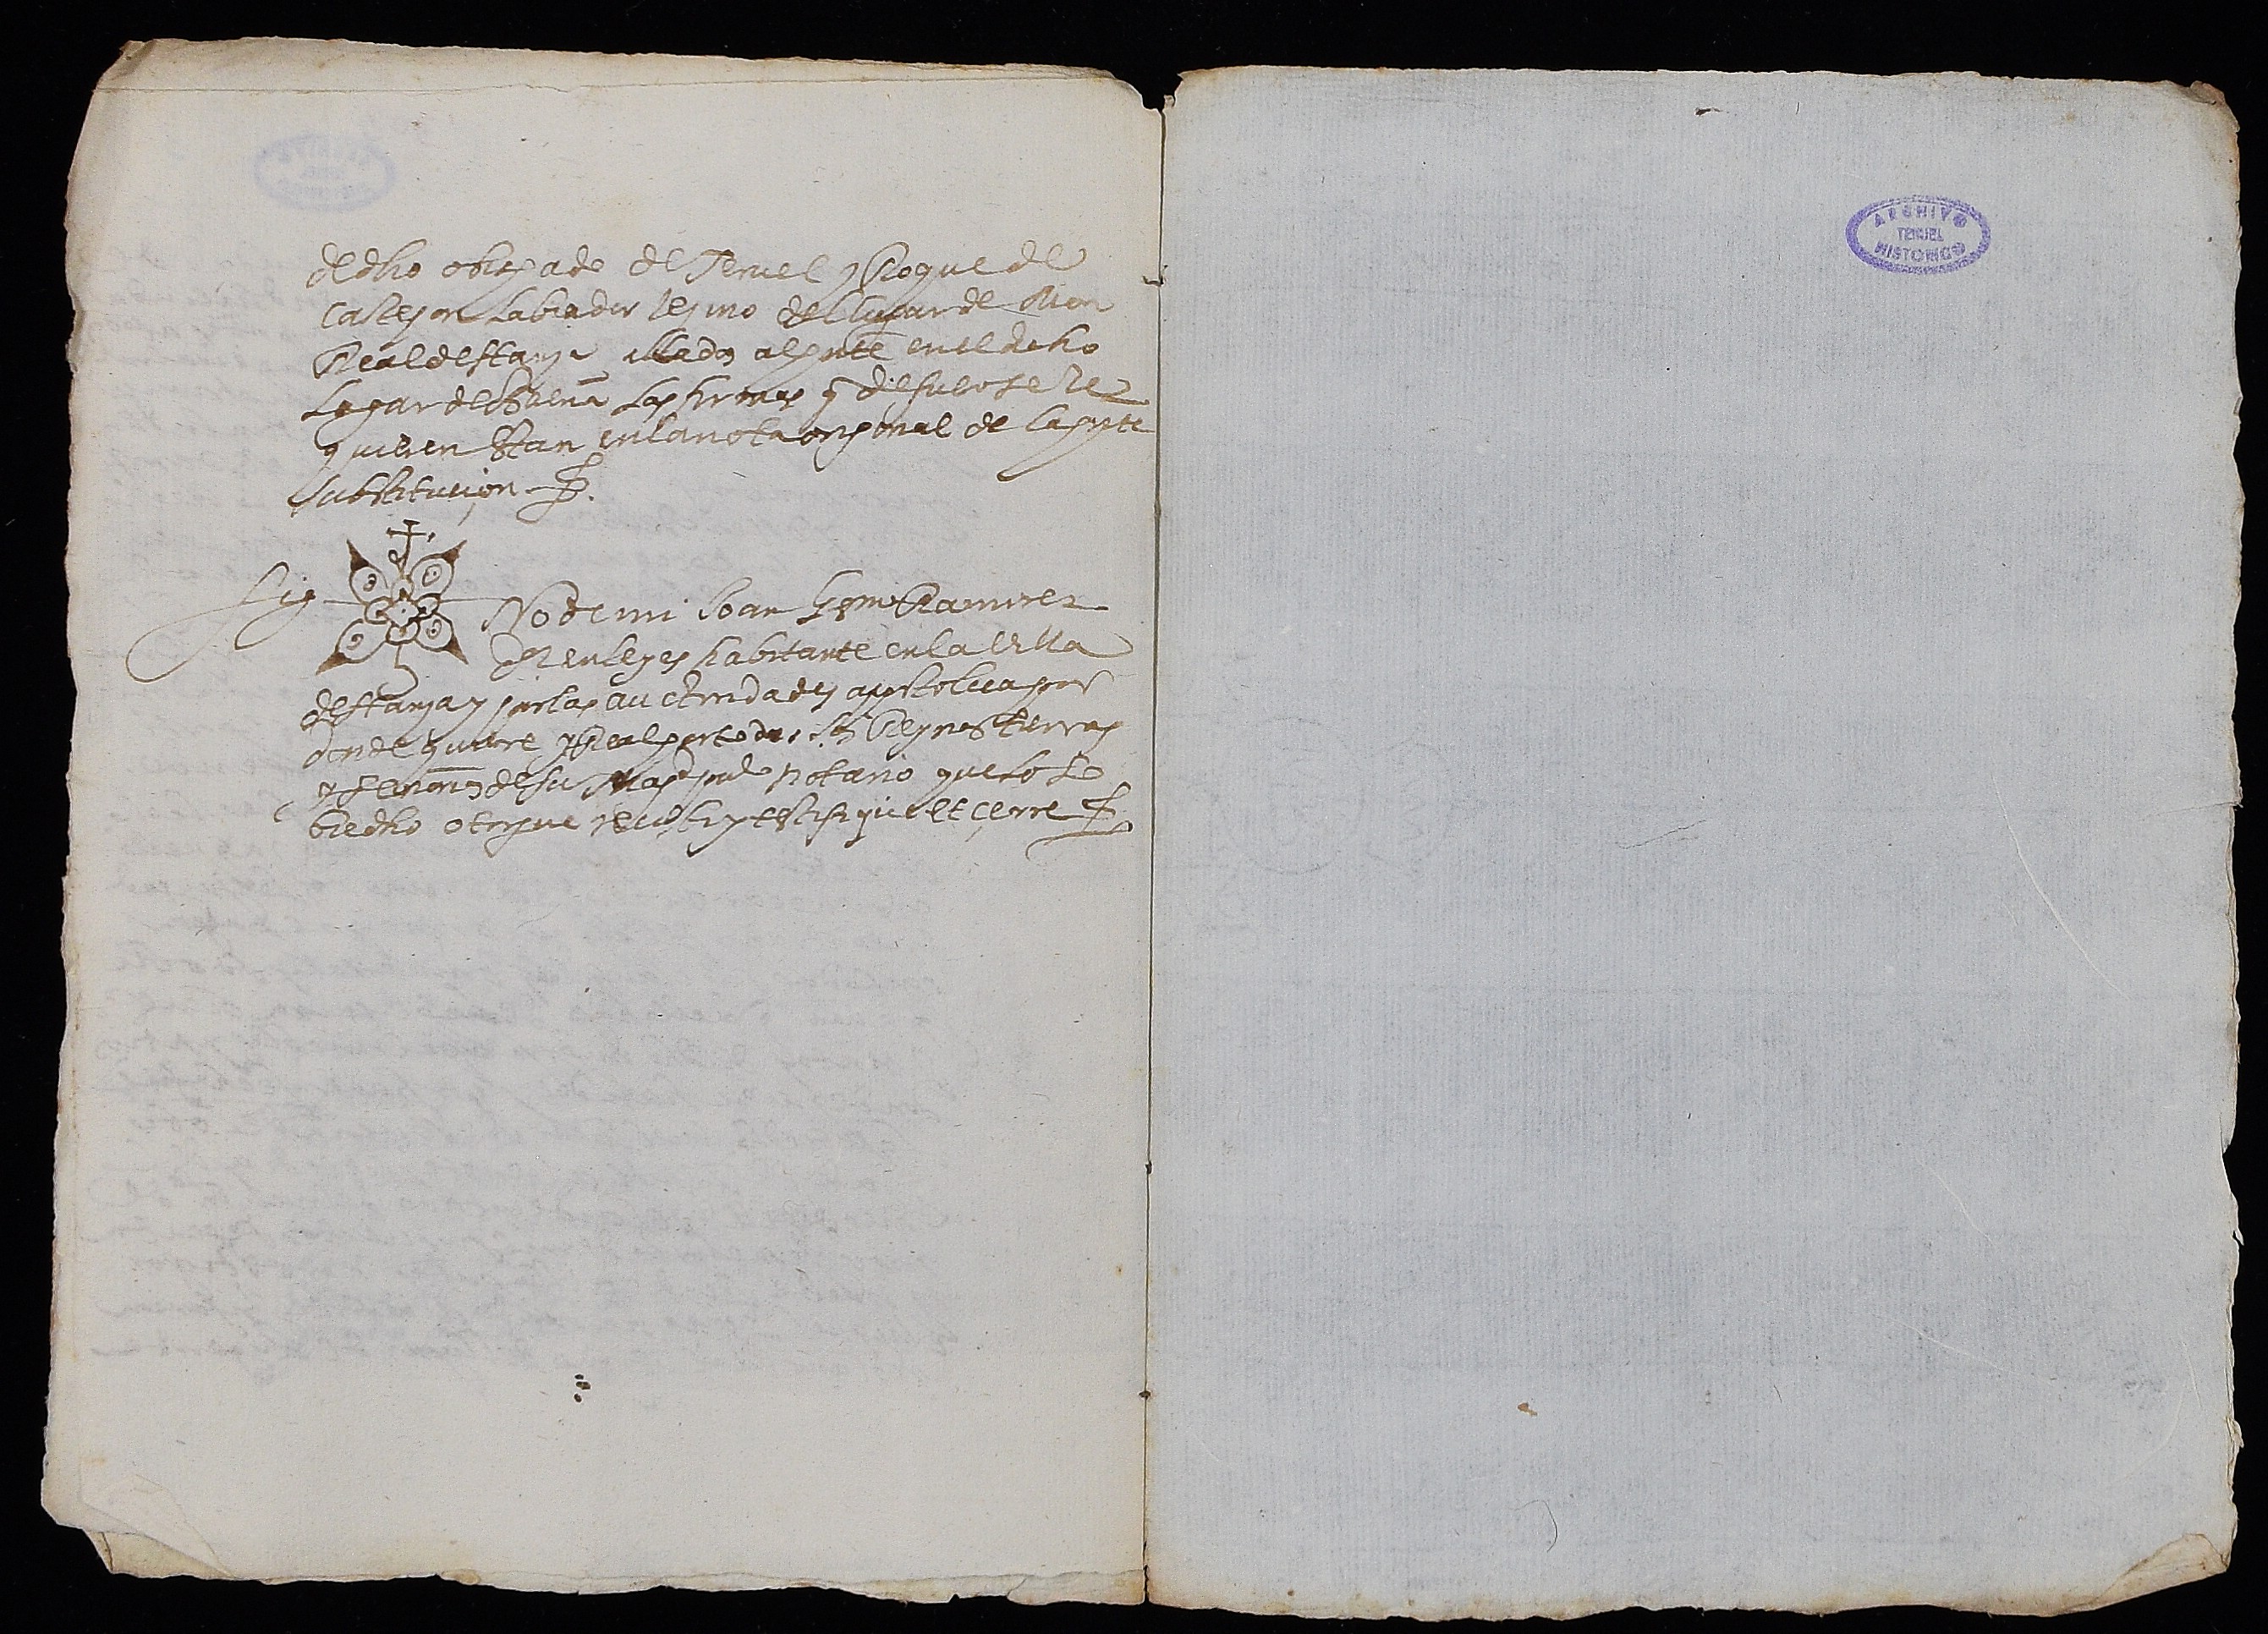 dedho obispado de Teruel y Roque de
Castejon labrador vezino del lugar de Mon
Real de Hariza allados al pnte en el dcho
Lugar de Buena las firmas q de fuero se re
quieren stan en la nota original de la pnte
substitucion
Sig
No de mi Joan Ramirez
en leyes habitante en la villa
de Hariza y por las auctoridades appostolica por
donde quiere y Real por todos los Reynos tierras
y Senorios de su Magd publo notario que lo so
bredho otorgue recebi y testifique et cerre
ARCHIVO
TERUEL
HISTORICO